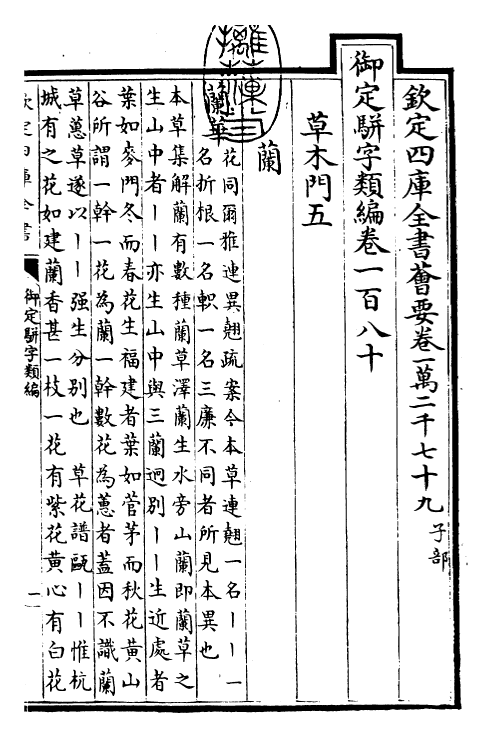 欽定四庫全書薈要卷一萬二千七十九 子部
御定駢字類編卷一百八十
草木門五
蘭
蘭華 花同爾雅連異翹疏案今本草連翹一名丨丨一
名折根一名軹一名三廉不同者所見本異也
本草集解蘭有數種蘭草澤蘭生水旁山蘭即蘭草之
生山中者丨丨亦生山中與三蘭迥別丨丨生近處者
葉如麥門冬而春花生福建者葉如菅茅而秋花黄山
谷所謂一幹一花為蘭一幹數花為蕙者蓋因不識蘭
草蕙草遂以丨丨强生分别也 草花譜甌丨丨惟杭
城有之花如建蘭香甚一枝一花有紫花黄心有白花
欽定四庫全書
御定駢字類編
一